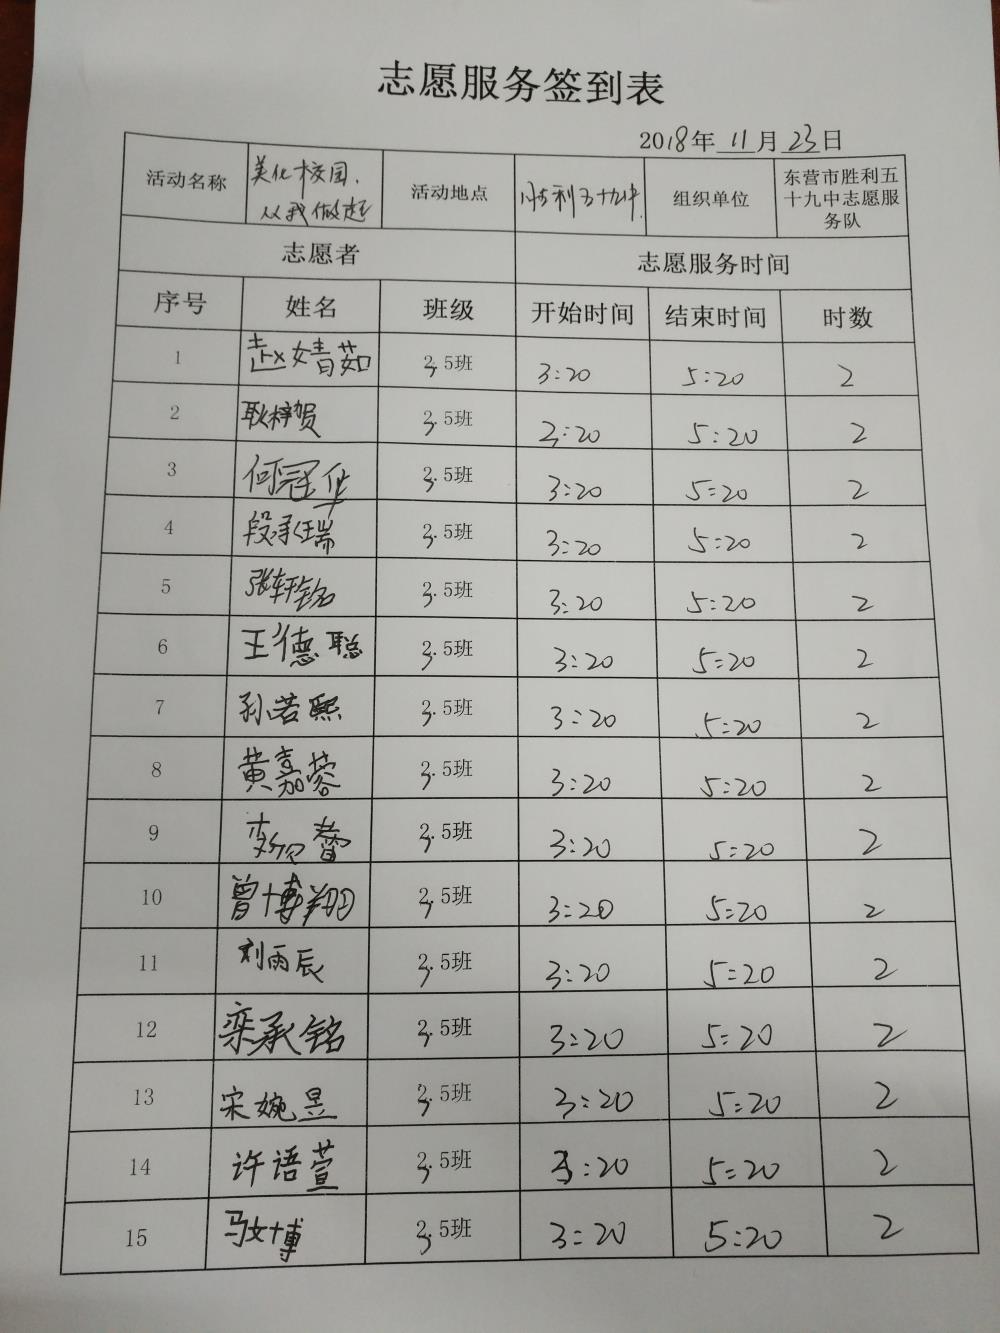 志愿服务签到表
2018年 11 月 23 日
活动名称 美化校园，从我做起 活动地点 胜利五十九中 组织单位 东营市胜利五十九中志愿服务队
志愿者 志愿服务时间
序号 姓名 班级 开始时间 结束时间 时数
1 赵婧茹 3.5班 3:20 5:20 2
2 耿梓贺 3.5班 3:20 5:20 2
3 何冠华 3.5班 3:20 5:20 2
4 段承瑞 3.5班 3:20 5:20 2
5 张轩铭 3.5班 3:20 5:20 2
6 王德聪 3.5班 3:20 5:20 2
7 孙若熙 3.5班 3:20 5:20 2
8 黄嘉蓉 3.5班 3:20 5:20 2
9 3.5班 3:20 5:20 2
10 曾博翔 3.5班 3:20 5:20 2
11 刘雨辰 3.5班 3:20 5:20 2
12 栾承铭 3.5班 3:20 5:20 2
13 宋婉昱 3.5班 3:20 5:20 2
14 许语萱 3.5班 3:20 5:20 2
15 马文博 3.5班 3:20 5:20 2